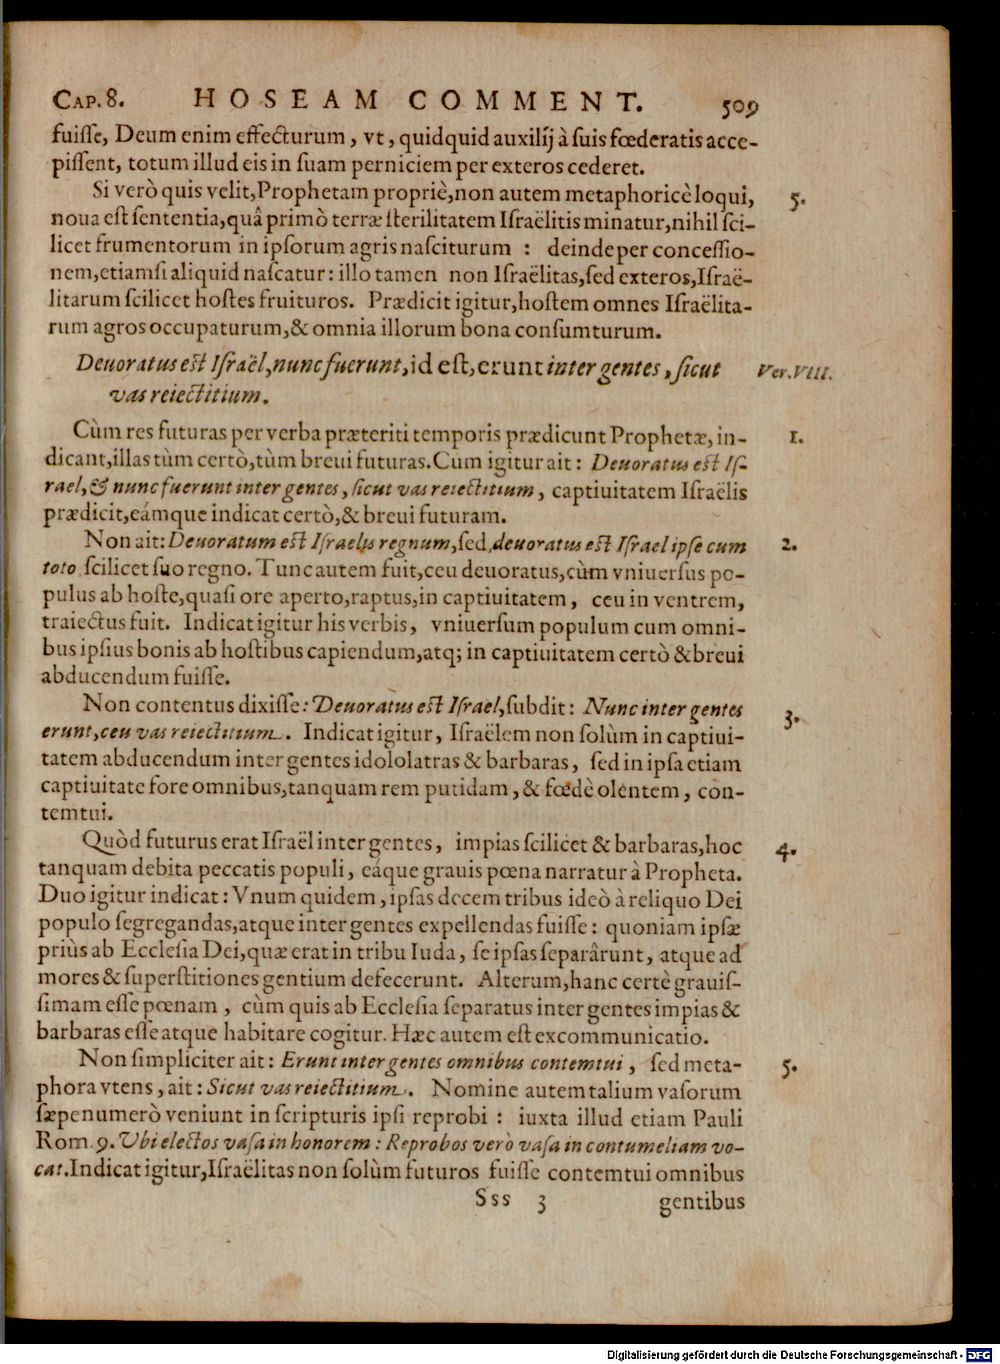 CAP. 8. HOSEAM COMMENT. 509
fuiſſe, Deum enim effecturum, vt, quidquid auxilij à ſuis fœderatis acce-
piſſent, totum illud eis in ſuam perniciem per exteros cederet.
Si verò quis velit, Prophetam propriè, non autem metaphoricè loqui, 5.
noua eſt ſententia, quâ primò terræ ſterilitatem Iſraëlitis minatur, nihil ſci-
licet frumentorum in ipſorum agris naſciturum : deinde per conceſſio-
nem, etiamſi aliquid naſcatur: illo tamen non Iſraëlitas, ſed exteros, Iſraë-
litarum ſcilicet hoſtes fruituros. Prædicit igitur, hoſtem omnes Iſraëlita-
rum agros occupaturum, & omnia illorum bona conſumturum.
Deuoratus eſt Iſraël, nunc fuerunt, id eſt, erunt inter gentes, ſicut Ver. VIII.
vas reiectitium.
Cùm res futuras per verba præteriti temporis prædicunt Prophetæ, in- 1.
dicant, illas tùm certò, tùm breui futuras. Cùm igitur ait: Deuoratus eſt Iſ-
rael, & nunc fuerunt inter gentes, ſicut vas reiectitium, captiuitatem Iſraëlis
prædicit, eámque indicat certò, & breui futuram.
Non ait: Deuoratum eſt Iſraelis regnum, ſed, deuoratus eſt Iſrael ipſe cum 2.
toto ſcilicet ſuo regno. Tunc autem fuit, ceu deuoratus, cùm vniuerſus po-
pulus ab hoſte, quaſi ore aperto, raptus, in captiuitatem, ceu in ventrem,
traiectus fuit. Indicat igitur his verbis, vniuerſum populum cum omni-
bus ipſius bonis ab hoſtibus capiendum, atq; in captiuitatem certò & breui
abducendum fuiſſe.
Non contentus dixiſſe: Deuoratus eſt Iſrael, ſubdit: Nunc inter gentes 3.
erunt, ceu vas reiectitium. Indicat igitur, Iſraëlem non ſolùm in captiui-
tatem abducendum inter gentes idololatras & barbaras, ſed in ipſa etiam
captiuitate fore omnibus, tanquam rem putidam, & fœdè olentem, con-
temtui.
Quòd futurus erat Iſraël inter gentes, impias ſcilicet & barbaras, hoc 4.
tanquam debita peccatis populi, eáque grauis pœna narratur à Propheta.
Duo igitur indicat: Vnum quidem, ipſas decem tribus ideò à reliquo Dei
populo ſegregandas, atque inter gentes expellendas fuiſſe: quoniam ipſæ
priùs ab Eccleſia Dei, quæ erat in tribu Iuda, ſe ipſas ſeparârunt, atque ad
mores & ſuperſtitiones gentium defecerunt. Alterum, hanc certè grauiſ-
ſimam eſſe pœnam, cùm quis ab Eccleſia ſeparatus inter gentes impias &
barbaras eſſe atque habitare cogitur. Hæc autem eſt excommunicatio.
Non ſimpliciter ait: Erunt inter gentes omnibus contemtui, ſed meta- 5.
phora vtens, ait: Sicut vas reiectitium. Nomine autem talium vaſorum
ſæpenumerò veniunt in ſcripturis ipſi reprobi : iuxta illud etiam Pauli
Rom. 9. Vbi electos vaſa in honorem: Reprobos verò vaſa in contumeliam vo-
cat. Indicat igitur, Iſraëlitas non ſolùm futuros fuiſſe contemtui omnibus
Sss 3 gentibus
Digitalisierung gefördert durch die Deutsche Forschungsgemeinschaft - DFG